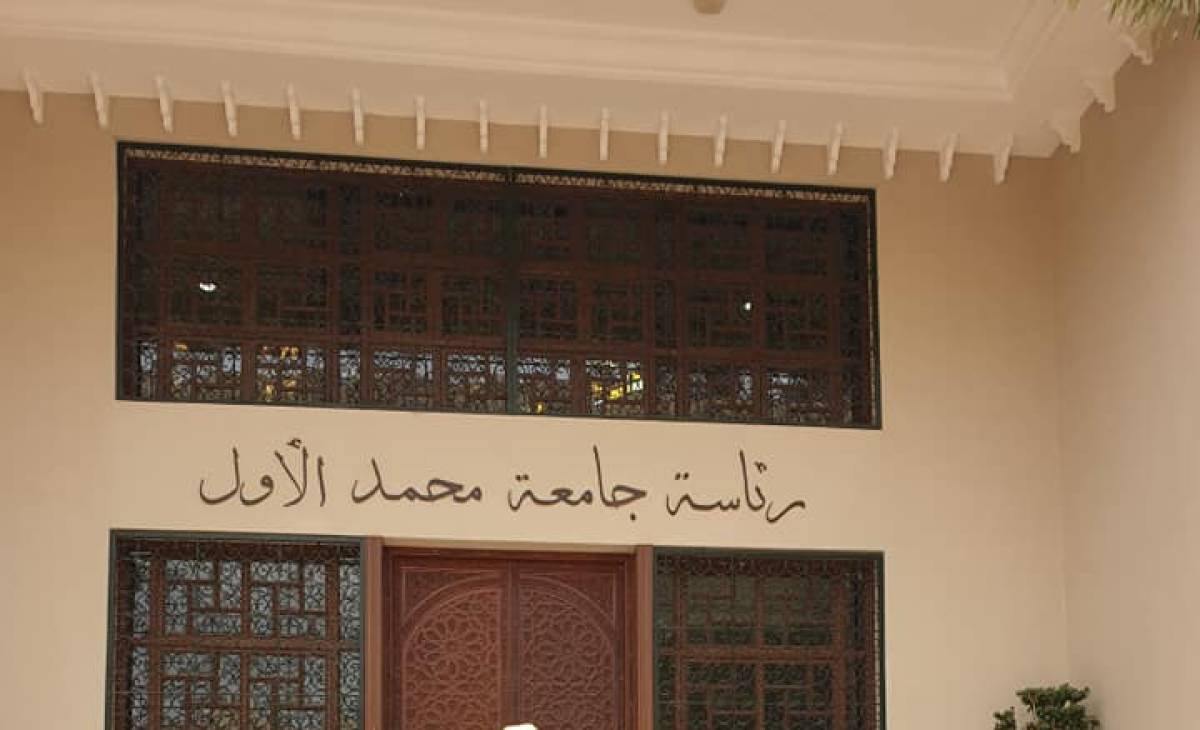 رئاسة جامعة محمد الأول